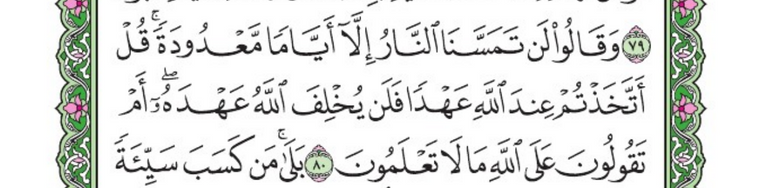 ٧٩ وَقَالُوا۟ لَن تَمَسَّنَا ٱلنَّارُ إِلَّآ أَيَّامًا مَّعْدُودَةً ۚ قُلْ
أَتَّخَذْتُمْ عِندَ ٱللَّهِ عَهْدًا فَلَن يُخْلِفَ ٱللَّهُ عَهْدَهُۥٓ ۖ أَمْ
تَقُولُونَ عَلَى ٱللَّهِ مَا لَا تَعْلَمُونَ ٨٠ بَلَىٰ ۚ مَن كَسَبَ سَيِّئَةً